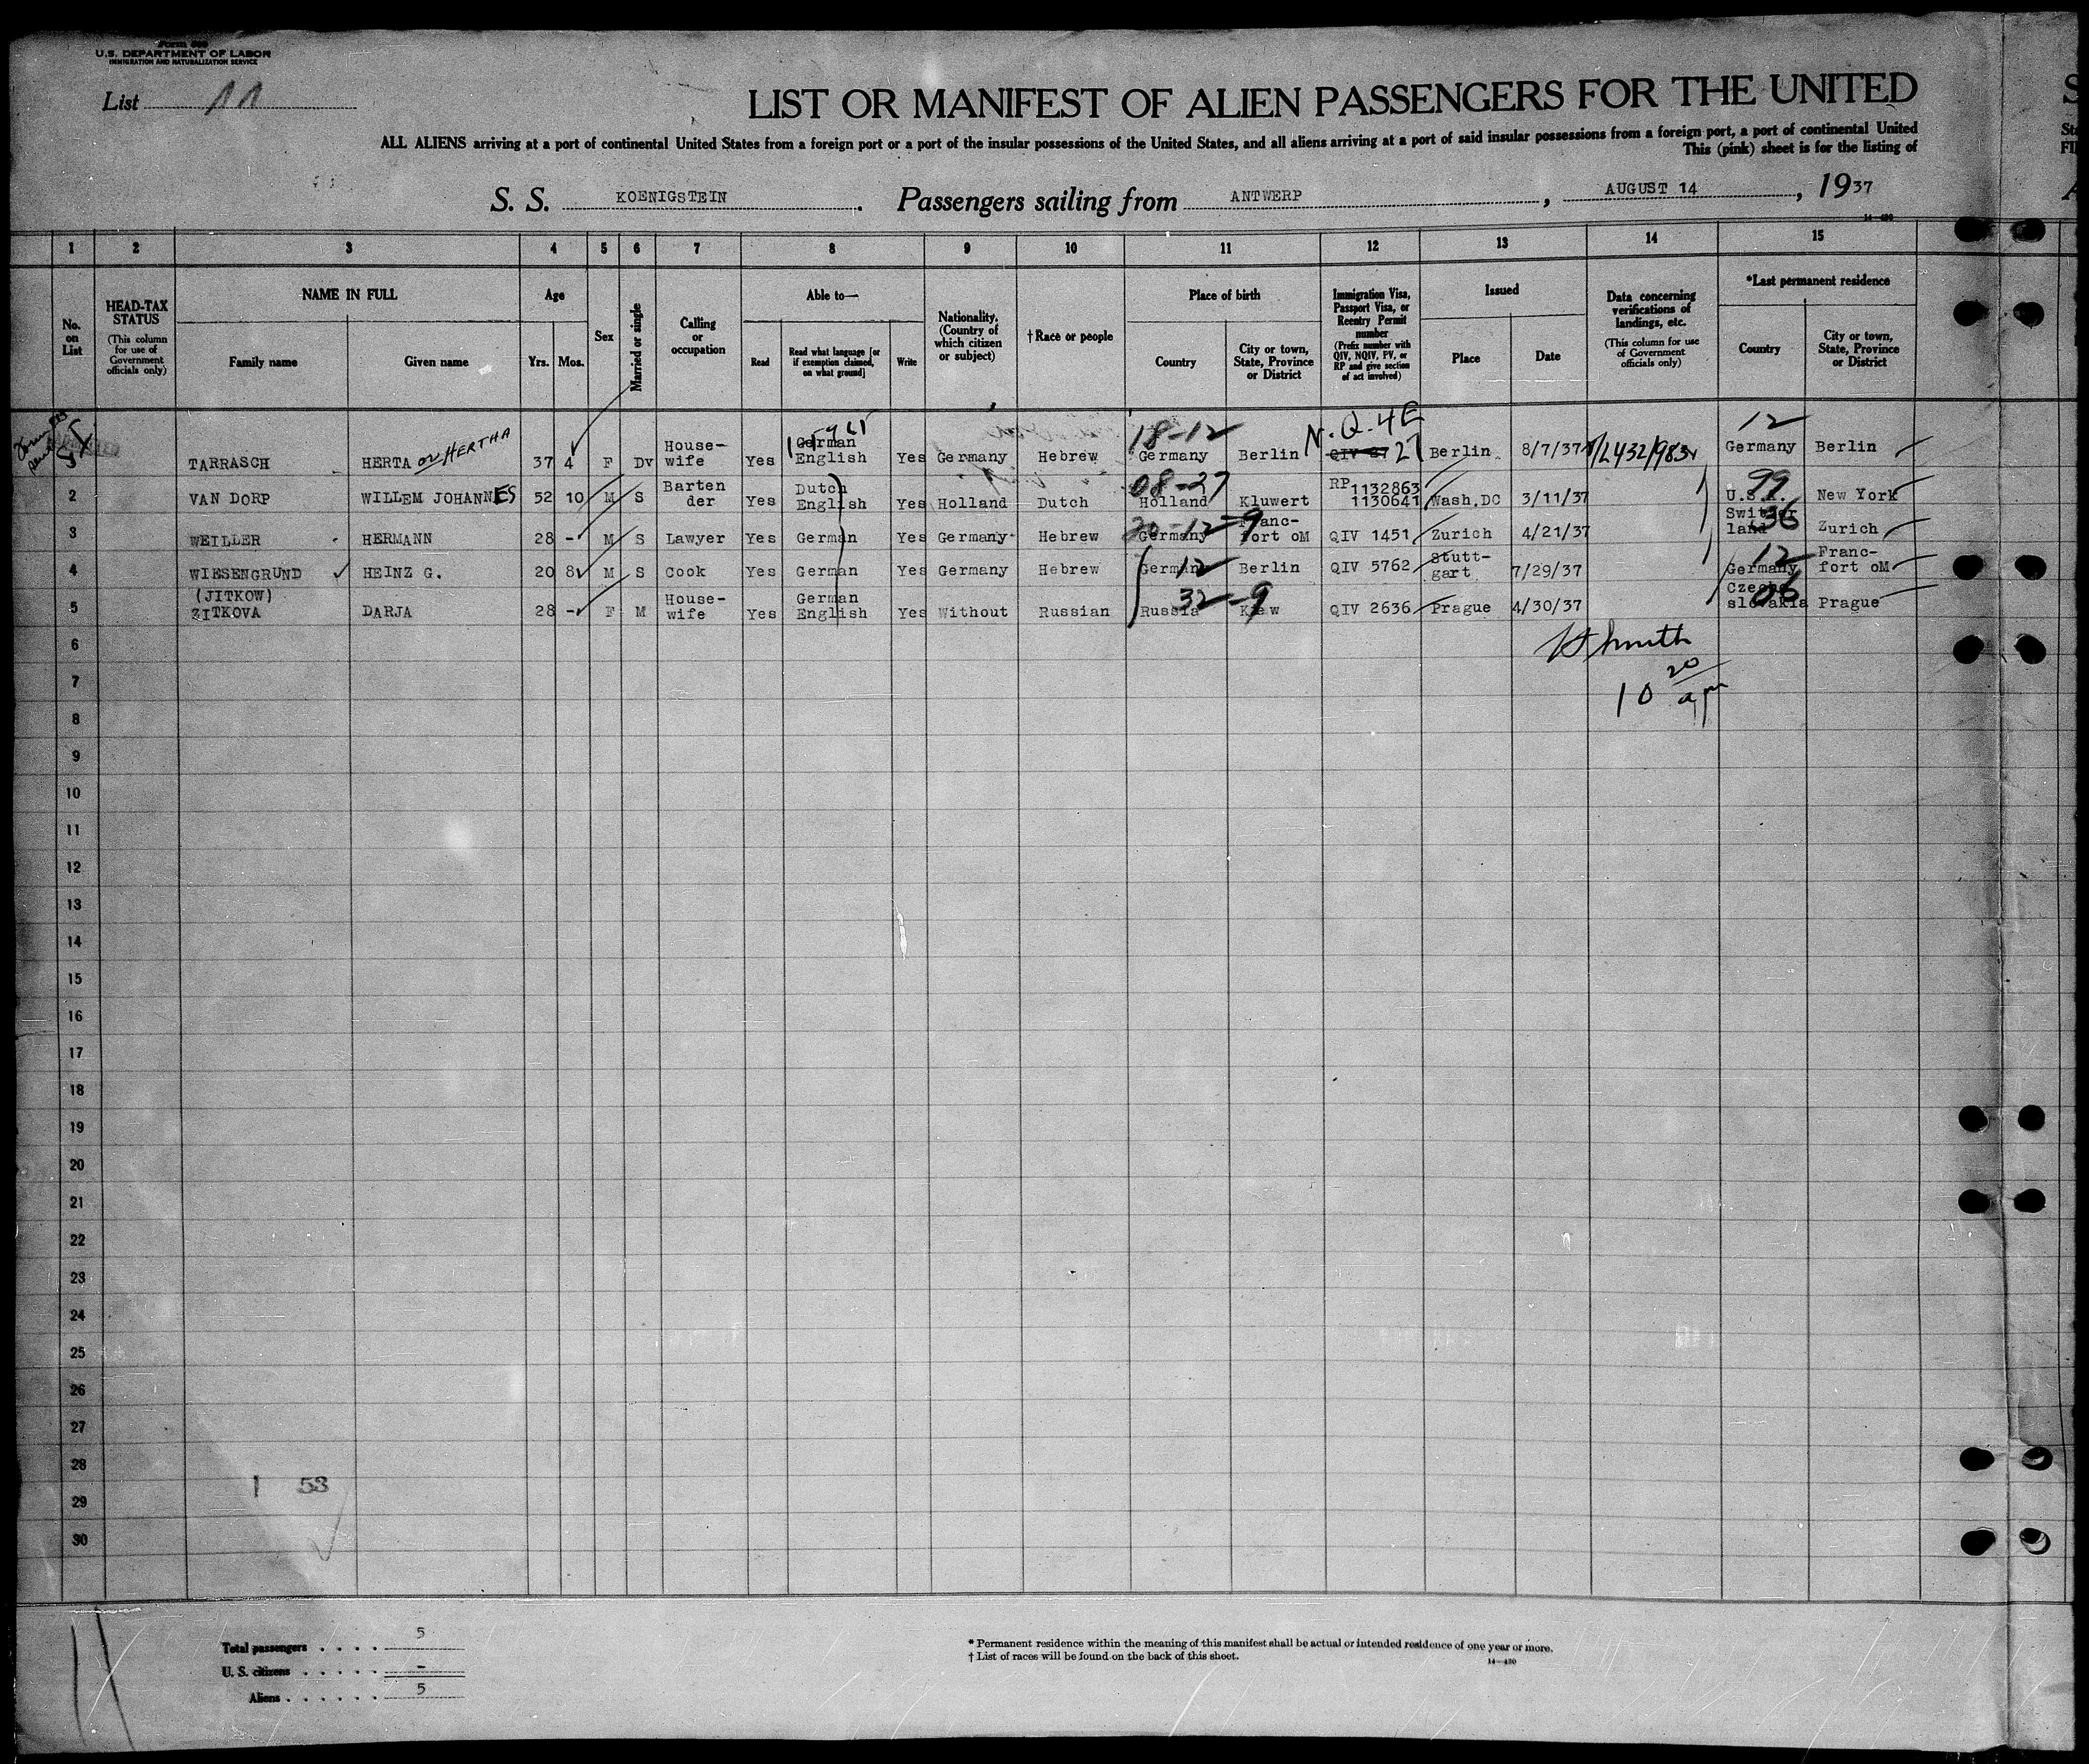 U.S. DEPARTMENT OF LABOR
IMMIGRATION AND NATURALIZATION SERVICE
List 11
LIST OR MANIFEST OF ALIEN PASSENGERS FOR THE UNITED
ALL ALIENS arriving at a port of continental United States from a foreign port or a port of the insular possessions of the United States, and all aliens arriving at a port of said insular possessions from a foreign port, a port of continental United
This (pink) sheet is for the listing of
S. S. KOENIGSTEIN. Passengers sailing from ANTWERP, AUGUST 14, 1937
14-430
1 2 3 4 5 6 7 8 9 10 11 12 13 14 15
No. on List
HEAD-TAX STATUS
(This column for use of Government officials only)
NAME IN FULL
Family name
Given name
Age
Yrs. Mos.
Sex
Married or single
Calling or occupation
Able to—
Read
Read what language [or if exemption claimed, on what ground]
Write
Nationality. (Country of which citizen or subject)
†Race or people
Place of birth
Country
City or town, State, Province or District
Immigration Visa, Passport Visa, or Reentry Permit number
(Prefix number with QIV, NQIV, PV, or RP and give section of act involved)
Issued
Place
Date
Data concerning verifications of landings, etc.
(This column for use of Government officials only)
*Last permanent residence
Country
City or town, State, Province or District
18-12 N.Q.4E 12
TARRASCH HERTA or HERTHA 37 4 F Dv House-wife Yes German English Yes Germany Hebrew Germany Berlin QIV 27 Berlin 8/7/37 Germany Berlin
08-27 99
2 VAN DORP WILLEM JOHANNES 52 10 M S Bartender Yes Dutch English Yes Holland Dutch Holland Kluwert RP 1132863 1130641 Wash.DC 3/11/37 U.S.A. New York
30-12-9 36
3 WEILLER HERMANN 28 - M S Lawyer Yes German Yes Germany Hebrew Germany Franc-fort oM QIV 1451 Zurich 4/21/37 Switzerland Zurich
12 12
4 WIESENGRUND HEINZ G. 20 8 M S Cook Yes German Yes Germany Hebrew Germany Berlin QIV 5762 Stutt-gart 7/29/37 Germany Franc-fort oM
32-9 06
5 (JITKOW) ZITKOVA DARJA 28 - F M House-wife Yes German English Yes Without Russian Russia Kiew QIV 2636 Prague 4/30/37 Czechoslovakia Prague
6
10 20
7
8
9
10
11
12
13
14
15
16
17
18
19
20
21
22
23
24
25
26
27
28
1 53
29
30
Total passengers 5
U. S. citizens -
Aliens 5
* Permanent residence within the meaning of this manifest shall be actual or intended residence of one year or more.
† List of races will be found on the back of this sheet.
14-430